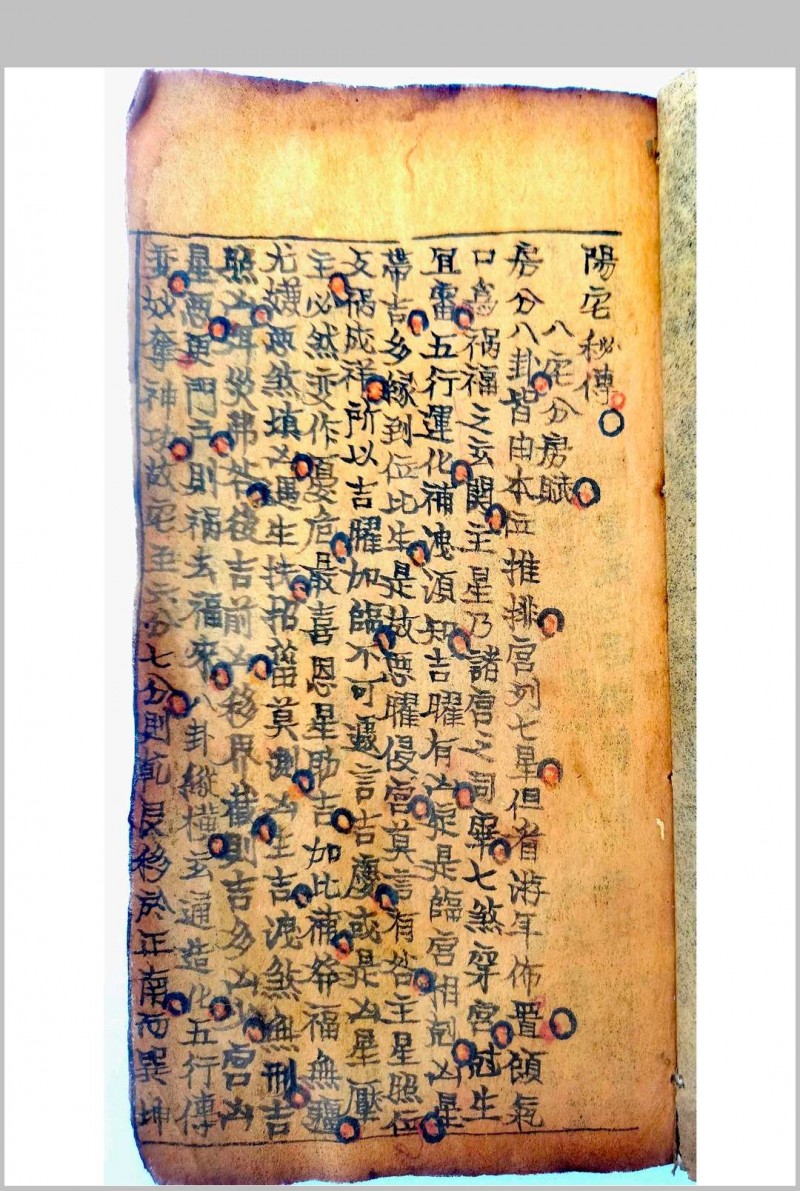 陽宅秘傳
八宅分房賦
房分八卦皆由本位推排宮列七星但看游年佈置領氣
口為禍福之玄関主星乃諸宮之司鼻七煞穿宮冠生
宜審五行運化補洩須知吉曜有凶定是臨宮相剋凶星
帶吉多縁到位比生是故惡曜侵宮莫言有咎主星照位
反禍成祥所以吉曜加臨不可遽言吉慶或是凶星壓
主必然变作憂危最喜恩星助吉加比補爺福無疆
尤嫌惡煞填凶遇生扶招菑莫測凶生吉洩煞無刑吉
照凶災弗咎後吉前凶移界舊則吉多凶少宮凶
星惡更門戸則禍去福來八卦縱橫玄通造化五行傳
变妙奪神功故宅至六分七分則乾艮移於正南而巽坤